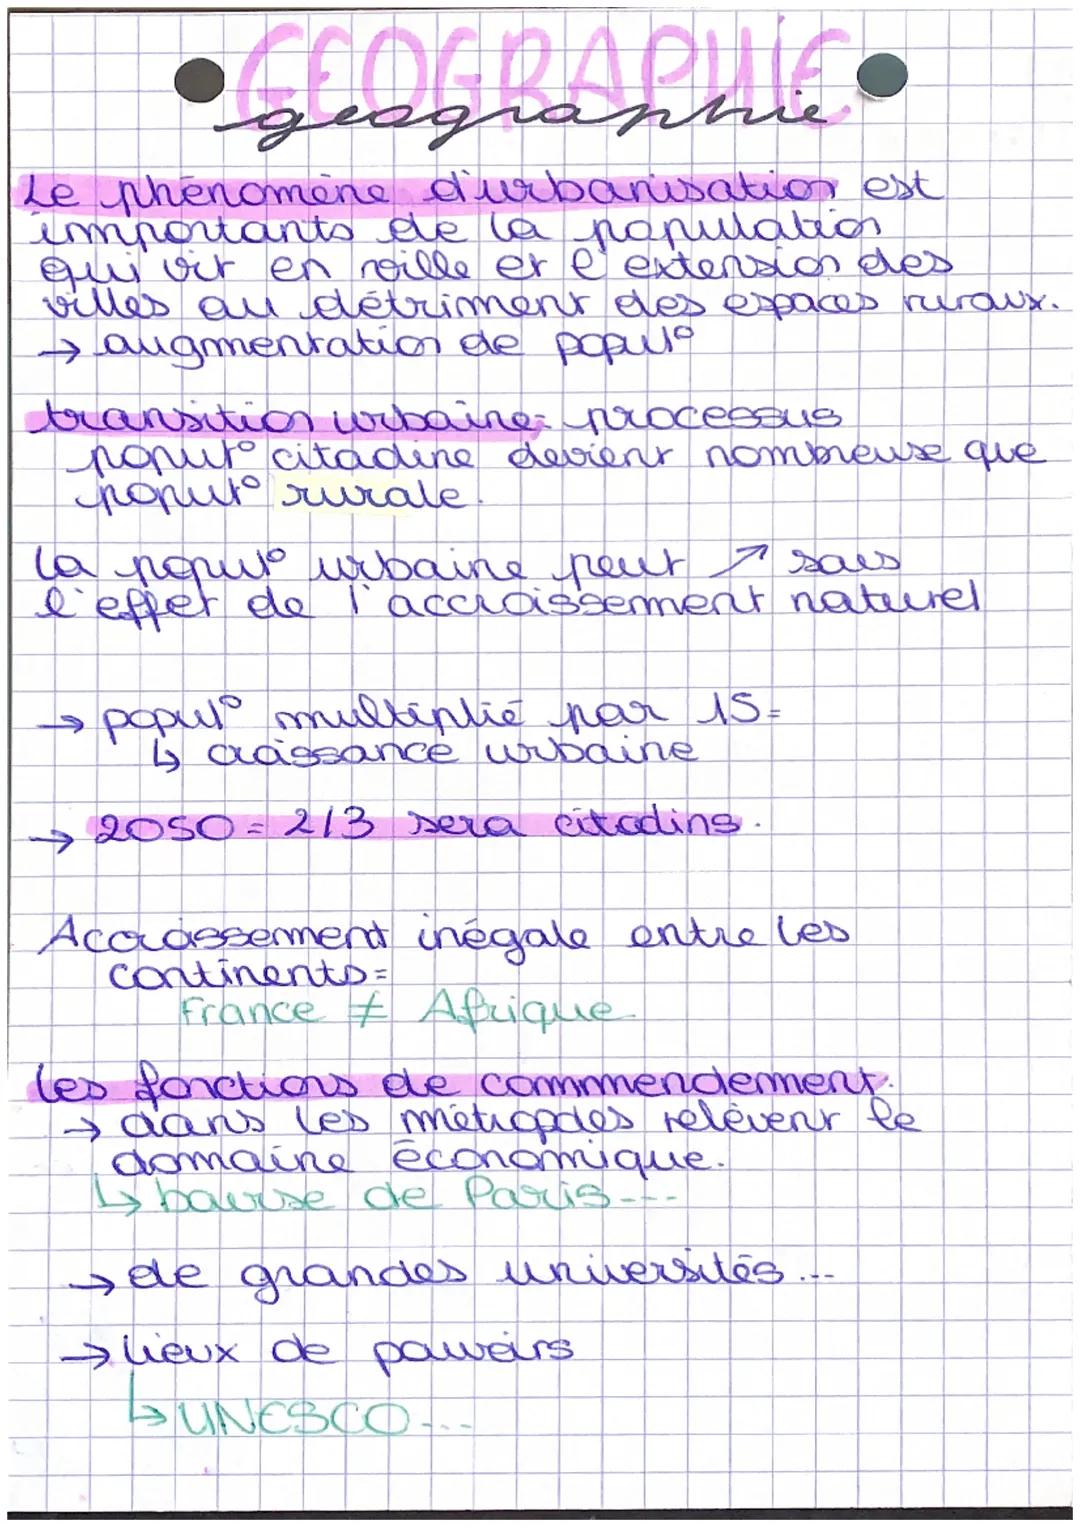 GEOGRAPHIE
geographie
Le phénomène d'urbanisation est
importants de la population
qui vit en ville et l'extension des
villes au détriment des espaces ruraux.
→ augmentation de popul°
transition urbaine: processus
popul° citadine devient nombreuse que
popul° rurale.
la popul° urbaine peut ↗ sous
l'effet de l'accroissement naturel
→ popul° multiplié par 15=
↳ croissance urbaine
→ 2050 = 2/3 sera citadins.
Accroissement inégale entre les
continents=
France ≠ Afrique
les fonctions de commmendement.
→ dans les métropoles relèvent le
domaine économique.
↳ bourse de Paris---
→ de grandes universités...
→ lieux de pouvoirs
↳ UNESCO---